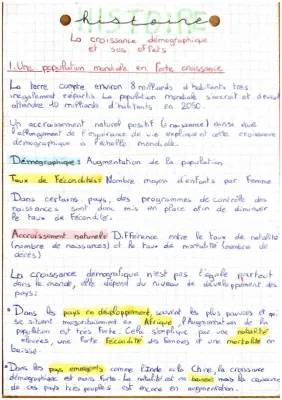 HISTOIRE
histoire
La croissance démographique
et ses effets
1. Une population mondiale en forte croissance
La terre compte environ 8 milliards d'habitants très
inégalement répartis. La population mondiale s'accroit et devrait
atteindre 10 milliards d'habitants en 2050.
Un accroissement naturel positif (naissance) ainsi que
l'allongement de l'espérance de vie expliquent cette croissance
démographique à l'échelle mondiale.
Démographique: Augmentation de la population
Taux de Fécondité: Nombre moyen d'enfants par femme
Dans certains pays, des programmes de contrôle des
naissances sont donc mis en place afin de diminuer
le taux de fécondité.
Accroissement naturel: Différence entre le taux de natalité
(nombre de naissances) et le taux de mortalité (nombre de
décès)
La croissance démografique n'est pas l'égale partout
dans le monde, elle dépend du niveau de développement
des pays:
• Dans les pays en développement, souvent les plus pauvres et qui
se situent majoritairement en Afrique, l'Augmentation de la
population est très forte. Cela s'explique par une natalité
élevée, une forte fécondité des femmes et une mortalité en
baisse.
• Dans les pays émergents comme l'Inde ou la Chine, la croissance
démographique est moins forte. La natalité est en baisse mais la
de ces pays très peuplés est encore en augmentation.